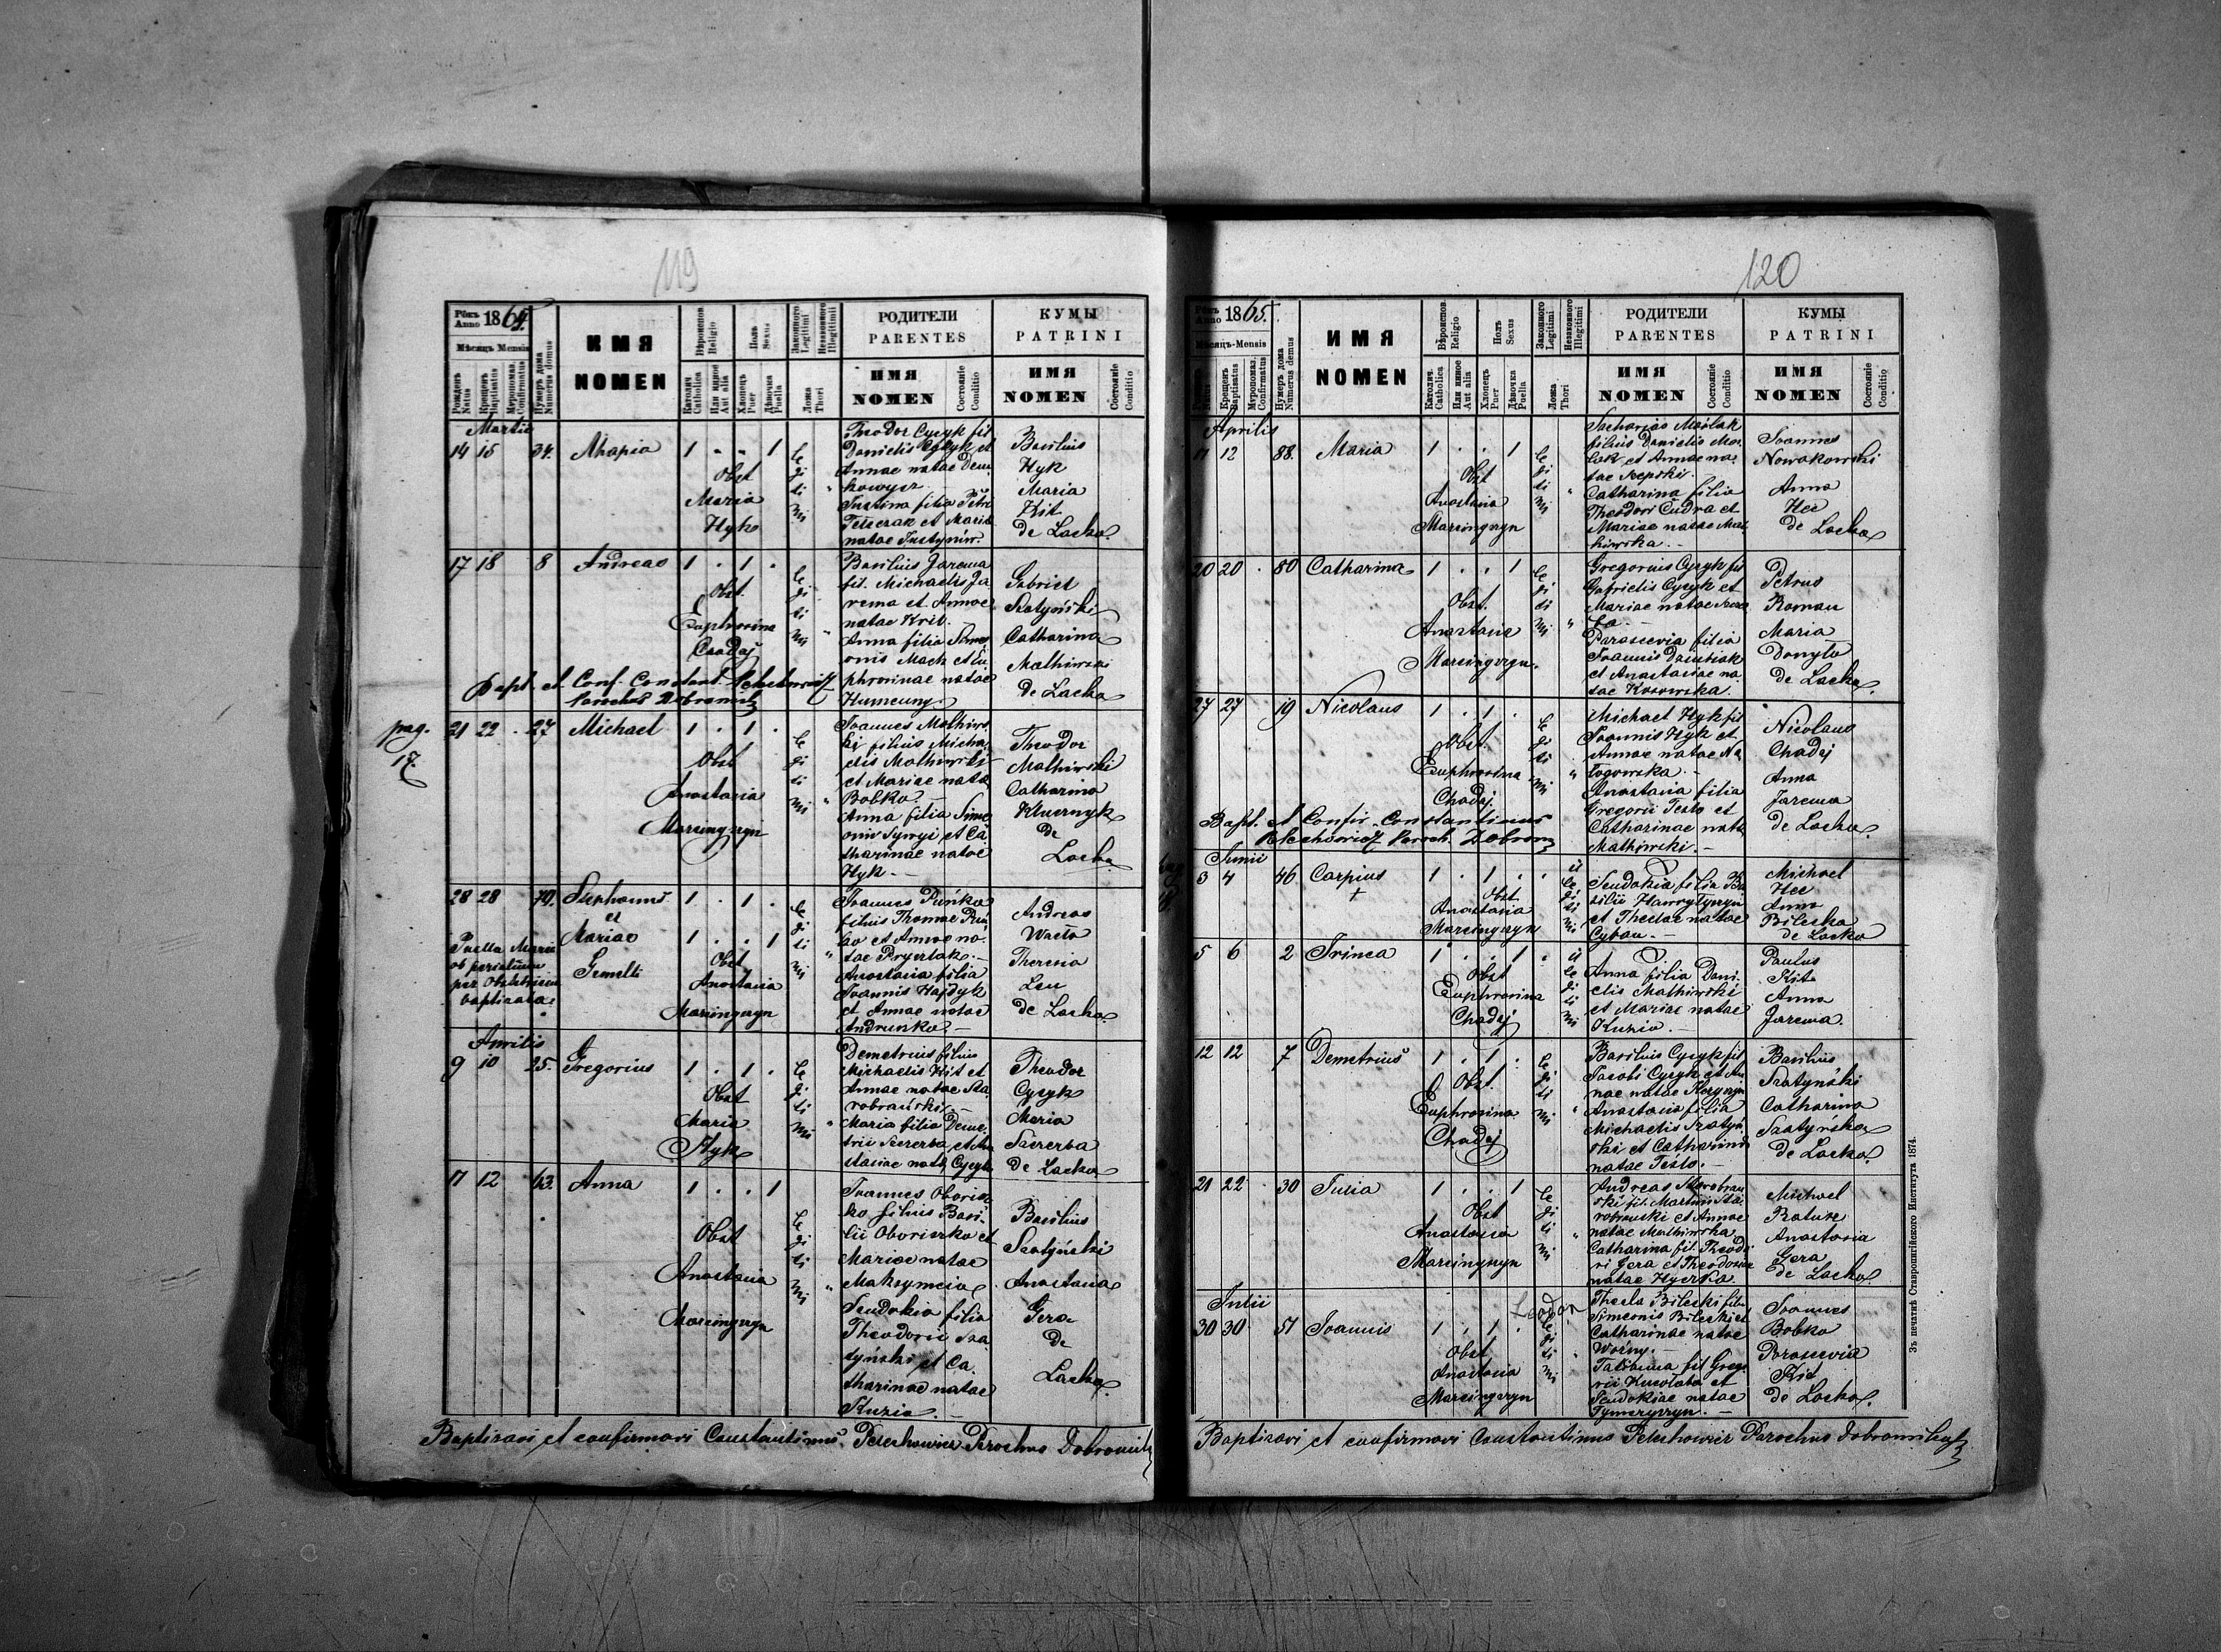 119
Рôкъ Anno 1864.
Мѣсяцъ Mensis
Рожденъ Natus
Крещенъ Baptisatus
Мѵропомаз. Confirmatus
Нумеръ дома Numerus domus
ИМЯ
NOMEN
Вѣроисповѣд. Religio
Католич Catholica
Или иное Aut alia
Полъ Sexus
Хлопецъ Puer
Дѣвочка Puella
Законного Legitimi
Незаконного Illegitimi
Ложа Thori
РОДИТЕЛИ
PARENTES
ИМЯ
NOMEN
Состоянiе Conditio
КУМЫ
PATRINI
ИМЯ
NOMEN
Состоянiе Conditio
Martii
14 15 34. 1 . . 1
Obst
Maria
Hyk
legitimi
Theodor Cyzyk fil
Danielis Cyzyk et
Annae natae Dem
kowycz
Justina filia Petri
et Maria
natae Justyniw.
Basilius
Hyk
Maria
Kit
de Lacko.
17 18 8 Andreas 1 . 1 .
Obst.
Euphrosina
Czadej
legitimi
Basilius Jarema
fil. Michaelis Ja
rema et Annae
natae Krit.
Anna filia Sime
onis Mach et Eu
phrosinae natae
Gabriel
Szatyński
Catharina
Mathiwski
de Lacko
Bapt. et Conf. Constant.
Parochus Dobromil
pag.
17.
21 22 . 27 Michael 1 . 1 .
Obst
Anastasia
Marcinyszyn
legitimi
Joannes Mathiws
ki filius Micha
elis Mathiwski
et Mariae nata
Bobko.
Anna filia Sime
onis et Ca
tharinae natae
Hyk.
Theodor
Mathiwski
Catharina
Klucznyk
de
Lacko
28 28 79. Stephanus 1 . 1 .
et
Mariae 1 . . 1
Gemelli
Puella Maria
ob periculum
per Obstetricem
baptisata.
Obst
Anastasia
Marcinyszyn
legitimi
Joannes Puńko
filius Thomae Puń
ko et Annae na
tae
Anastasia filia
Joannis Hajdyk
et Annae natae
Andruśko.
Andreas
Theresia
Leu
de Lacko.
Aprilis
9 10 25. Gregorius 1 . 1 .
Obst
Maria
Hyk
legitimi
Demetrius filius
Michaelis Kit et
Annae natae Sta
robrański.
Maria filia Deme
trii Szczerba, et Ana
stasiae nata, Cyzyk
Theodor
Cyzyk
Maria
Szczerba
de Lacko
11 12 63. Anna 1 . . 1
Obst
Anastasia
Marcinyszyn
legitimi
Joannes Oborisz
ko filius Basi
lii Oboriszko et
Mariae natae
Maksymcia
Eudokia filia
Theodori Sza
tyński et Ca
tharinae natae
Kuzio.
Basilius
Szatyński
Anastasia
Gera
de
Lacko.
Baptizavi et confirmavi Constantinus Pelechowicz Parochus Dobromil
120
Рôкъ Anno 1865.
Мѣсяцъ-Mensis
Natus
Крещенъ Baptisatus
Мѵропомаз. Confirmatus
Нумеръ дома Numerus domus
ИМЯ
NOMEN
Вѣроисповѣд. Religio
Католич. Catholica
Или иное Aut alia
Полъ Sexus
Хлопецъ Puer
Дѣвочка Puella
Законного Legitimi
Незаконного Illegitimi
Ложа Thori
РОДИТЕЛИ
PARENTES
ИМЯ
NOMEN
Состоянiе Conditio
КУМЫ
PATRINI
ИМЯ
NOMEN
Состоянiе Conditio
Aprilis
11 12 88. Maria 1 . . 1
Obst
Anastasia
Marcinyszyn
legitimi
Zacharias
filius Danielis
et Annae na
tae
Catharina filia
Theodori Cudra et
Mariae natae Mat
hiwska.
Joannes
Nowakowski
Anna
Hec
de Lacko
20 20 . 80 Catharina 1 . . 1
Obst.
Anastasia
Marcinyszyn.
legitimi
Gregorius Cyzyk fil
Gabrielis Cyzyk et
Mariae natae
Parascevia filia
Joannis
et Anastasiae na
tae Kosowska.
Petrus
Roman
Maria
Donyto
de Lacko.
27 27 19 Nicolaus 1 . 1 .
Obst.
Euphrosina
Chadej
legitimi
Michael Hyk fil
Joannis Hyk et
Annae natae
Anastasia filia
Gregorii Testo et
Catharinae nata
Mathiwski.
Nicolaus
Chadej
Anna
Jarema
de Lacko.
Bapt. et Confir. Constantinus
Pelechowicz Paroch. Dobrom
Junii
3 4 46 Carpius 1 . 1 .
+
Obst.
Anastasia
Marcinyszyn
illegitimi
Eudokia, filia Ba
silii
et Theclae natae
Cyban.
Michael
Hec
Anna
Bilecka
de Lacko
5 6 2 Irinea 1 . . 1
Obst
Euphrosina
Chadej
illegitimi
Anna filia Dani
elis Mathiwski
et Mariae natae
Kuzio.
Paulus
Kit
Anna
Jarema.
12 12 7 Demetrius 1 . 1 .
Obst.
Euphrosina
Chadej
legitimi
Basilius Cyzyk fil
Jacobi Cyzyk et An
nae natae
Anastasia filia
Michaelis Szatyń
ski et Catharina
natae Testo.
Basilius
Szatyński
Catharina
Szatyńska
de Lacko.
21 22 . 30 Julia 1 . . 1
Obst
Anastasia
Marcinyszyn
legitimi
Andreas Starobran
ski fil. Martini Sta
robranski et Annae
natae Mathiwska
Catharina fil. Theodo
ri Gera et Theodosiae
natae Hycrka.
Michael
Anastasia
Gera
de Lacko.
Julii
30 30 51 Joannis 1 . 1 .
Obst
Anastasia
Marcinyszyn
legitimi
Bilecki filiu
Simeonis Bilecki et
Catharinae natae
Woźny.
Tatianna fil Grego
rii et
Eudokiae natae
Joannes
Bobko
Parascevia
Kit
de Lacko.
Baptizavi et confirmavi Constantinus Pelechowicz Parochus Dobromil
Зъ печатнѣ Ставропигiйского Института 1874.